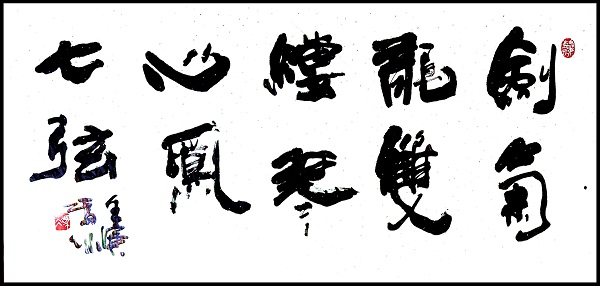 劍氣
龍雙
縷琴
心鳳
七弦